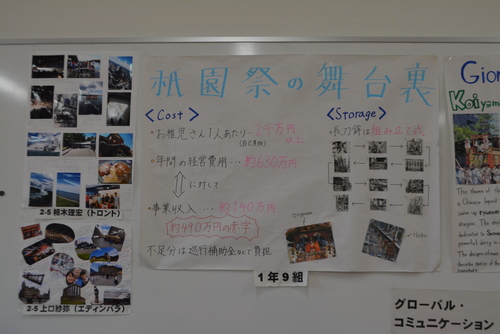 祇園祭の舞台裏
<Cost>
・お稚児さん1人あたり…2千万円以上
(自己負担)
・年間の経営費用…約630万円
に対して
・事業収入…約140万円
約490万円の赤字
不足分は巡行補助金などで負担
<Storage>
・長刀鉾は組み立て式
Hoko
1年9組
2-5 植木理宏(トロント)
2-5 上口紗弥(エディンバラ)
Gion
Koiyama
グローバル・
コミュニケーション